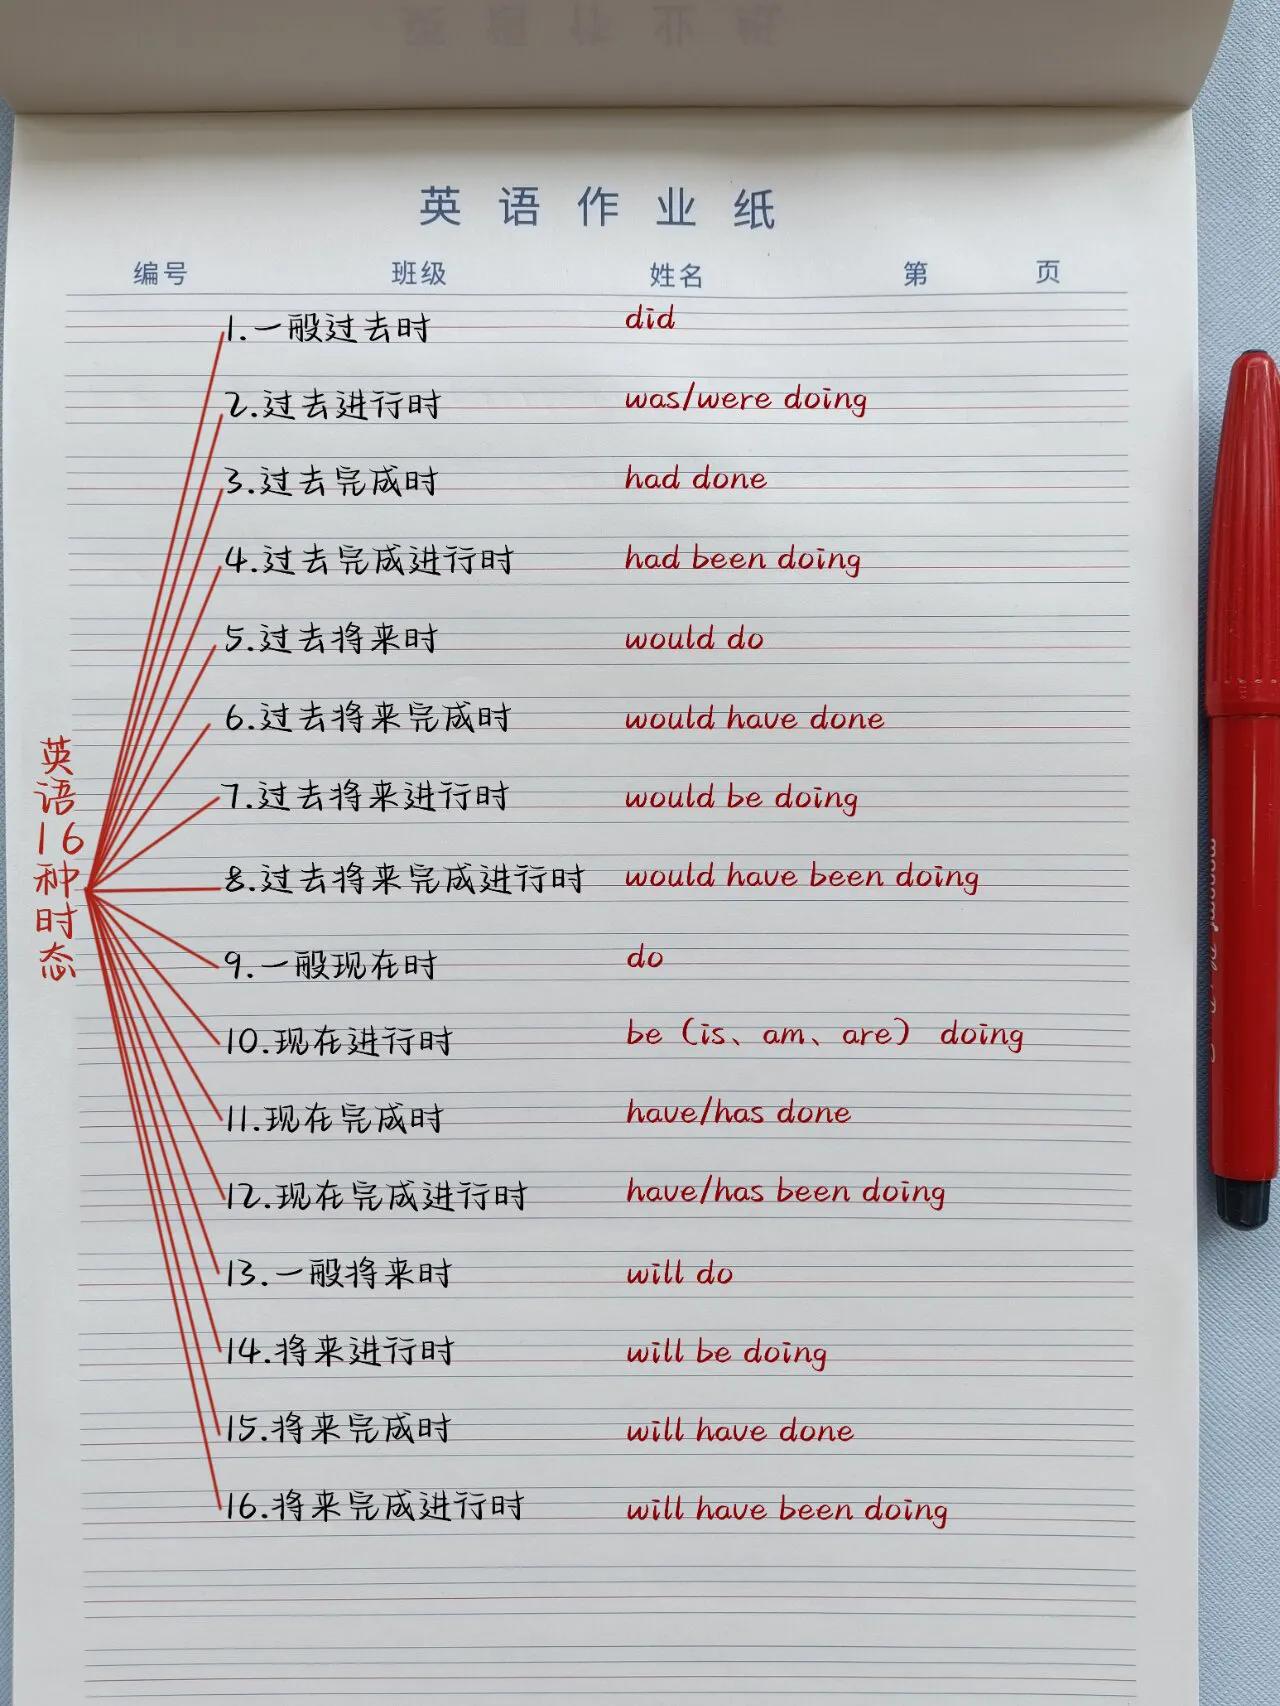 英语作业纸
编号 班级 姓名 第 页
英语16种时态
1.一般过去时 did
2.过去进行时 was/were doing
3.过去完成时 had done
4.过去完成进行时 had been doing
5.过去将来时 would do
6.过去将来完成时 would have done
7.过去将来进行时 would be doing
8.过去将来完成进行时 would have been doing
9.一般现在时 do
10.现在进行时 be（is、am、are） doing
11.现在完成时 have/has done
12.现在完成进行时 have/has been doing
13.一般将来时 will do
14.将来进行时 will be doing
15.将来完成时 will have done
16.将来完成进行时 will have been doing